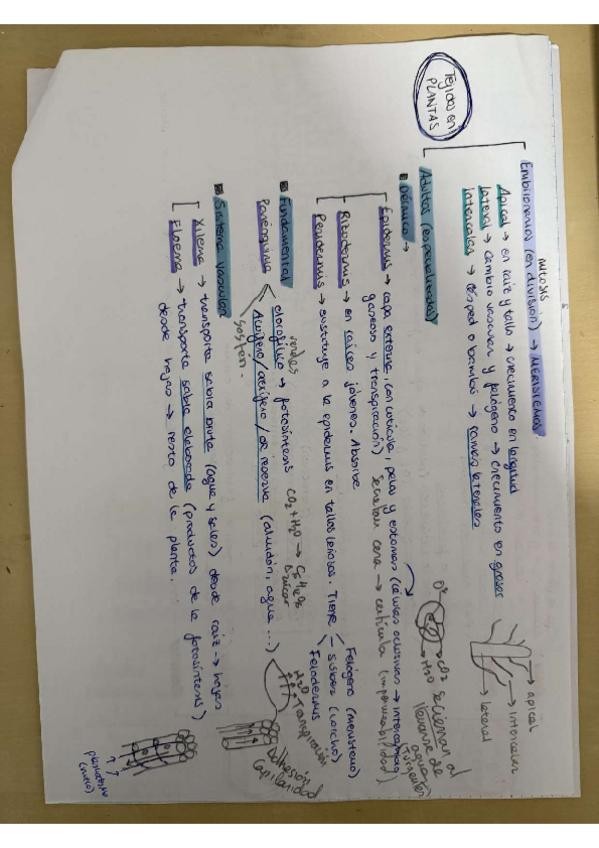 Tejidos en
PLANTAS
mitosis
Embrionarios (en división) → MERISTEMOS
Apical → en raíz y tallo → crecimiento en longitud
Lateral → cambio vascular y felógeno → crecimiento en grosor
Intercalar → césped o bambú → ramas laterales
→ apical
→ intercalar
→ lateral
Adultos (especializados)
Dérmico →
Epidermis → capa externa, con cutícula, pelos y estomas (células oclusivas → intercambio
gaseoso y transpiración) Secretan cera → cutícula (impermeabilidad)
O2
CO2
H2O
se cierran al
llenarse de
agua
Rizodermis → en raíces jóvenes. Absorbe
Peridermis → sustituye a la epidermis en tallos leñosos. Tiene
Felógeno (meristemo)
súber (corcho)
Felodermis
Fundamental
verdes
Parénquima
clorofílico → fotosíntesis CO2 + H2O → C6H12O6
azúcar
Acuífero/aerífero/de reserva (almidón, agua ...)
sostén.
H2O
Transpiración
Adhesión
Capilaridad
Sistema vascular
Xilema → transporta savia bruta (agua y sales) desde raíz → hojas
Floema → transporta savia elaborada (productos de la fotosíntesis)
desde hojas → resto de la planta.
? ?